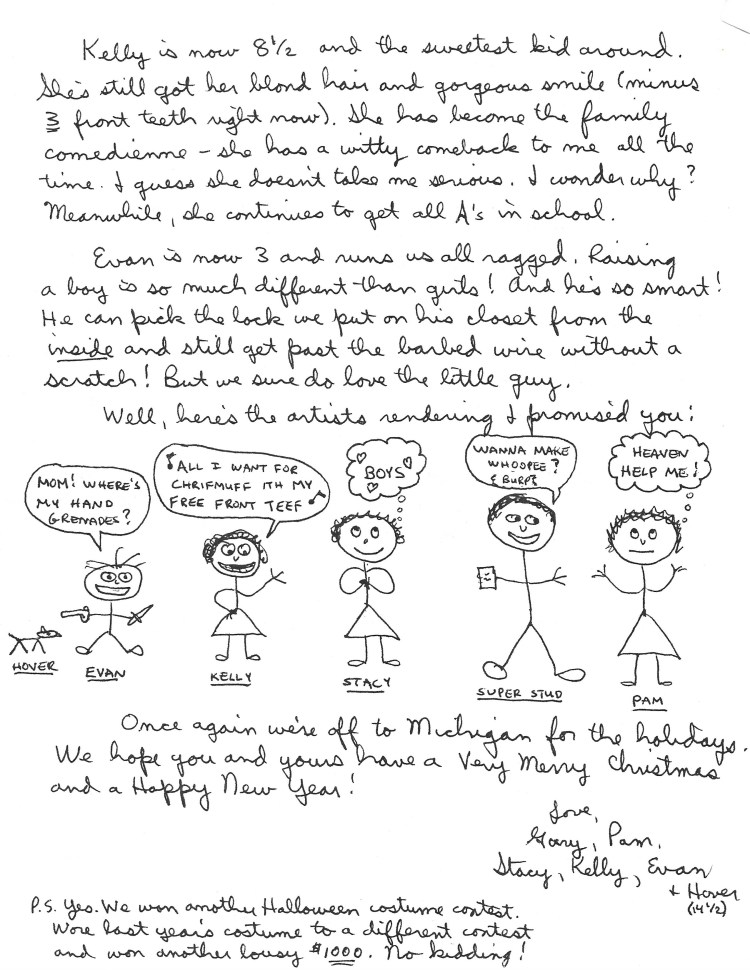 Kelly is now 8 1/2 and the sweetest kid around.
She's still got her blond hair and gorgeous smile (minus
3 front teeth right now). She has become the family
comedienne – she has a witty comeback to me all the
time. I guess she doesn't take me serious. I wonder why?
Meanwhile, she continues to get all A's in school.
Evan is now 3 and runs us all ragged. Raising
a boy is so much different than girls! And he's so smart!
He can pick the lock we put on his closet from the
inside and still get past the barbed wire without a
scratch! But we sure do love the little guy.
Well, here's the artists rendering I promised you:
MOM! WHERE'S
MY HAND
GRENADES?
ALL I WANT FOR
CHRIFMUFF ITH MY
FREE FRONT TEEF
BOYS
WANNA MAKE
WHOOPEE?
{BURP}
HEAVEN
HELP ME!
HOVER
EVAN
KELLY
STACY
SUPER STUD
PAM
Once again we're off to Michigan for the holidays.
We hope you and yours have a Very Merry Christmas
and a Happy New Year!
Love,
Gary, Pam,
Stacy, Kelly, Evan
+ Hover
(14 1/2)
P.S. Yes. We won another Halloween costume contest.
Wore last year's costume to a different contest
and won another lousy $1000. No kidding!